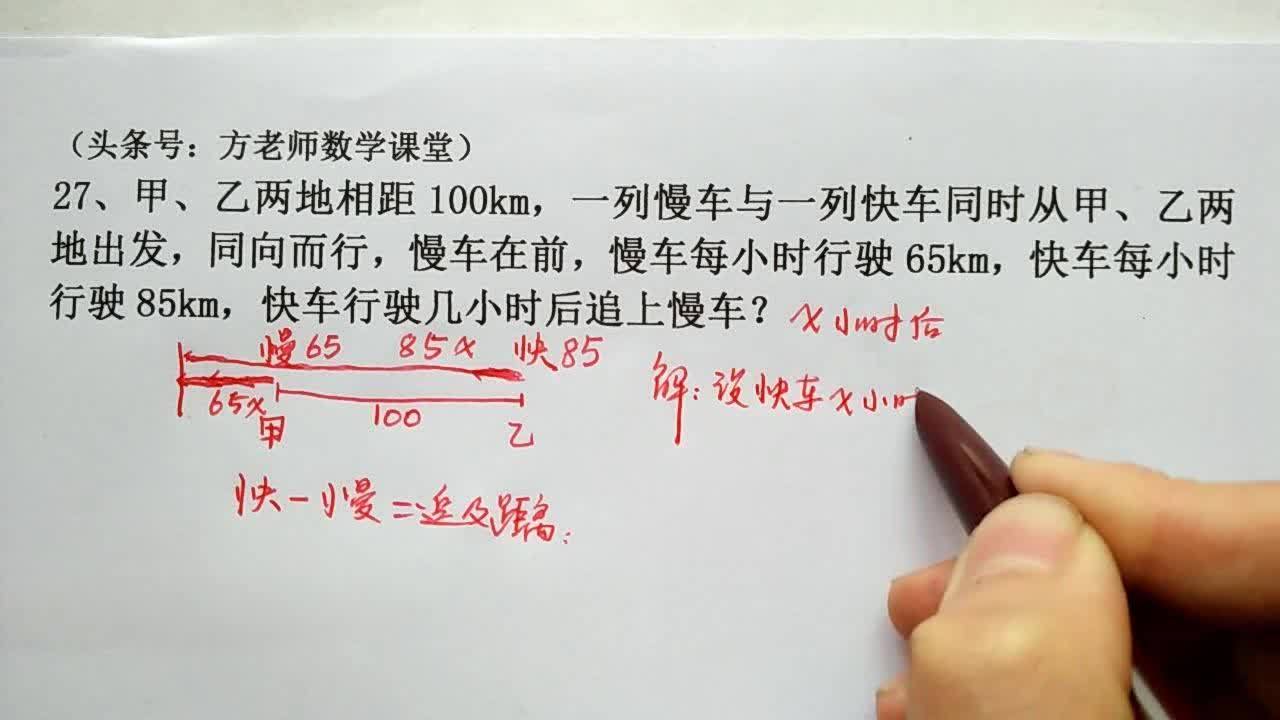 （头条号：方老师数学课堂）
27、甲、乙两地相距100km，一列慢车与一列快车同时从甲、乙两
地出发，同向而行，慢车在前，慢车每小时行驶65km，快车每小时
行驶85km，快车行驶几小时后追上慢车？
x小时后
慢65 85x 快85
65x 100
甲 乙
快-慢=追及距离：
解：设快车x小时